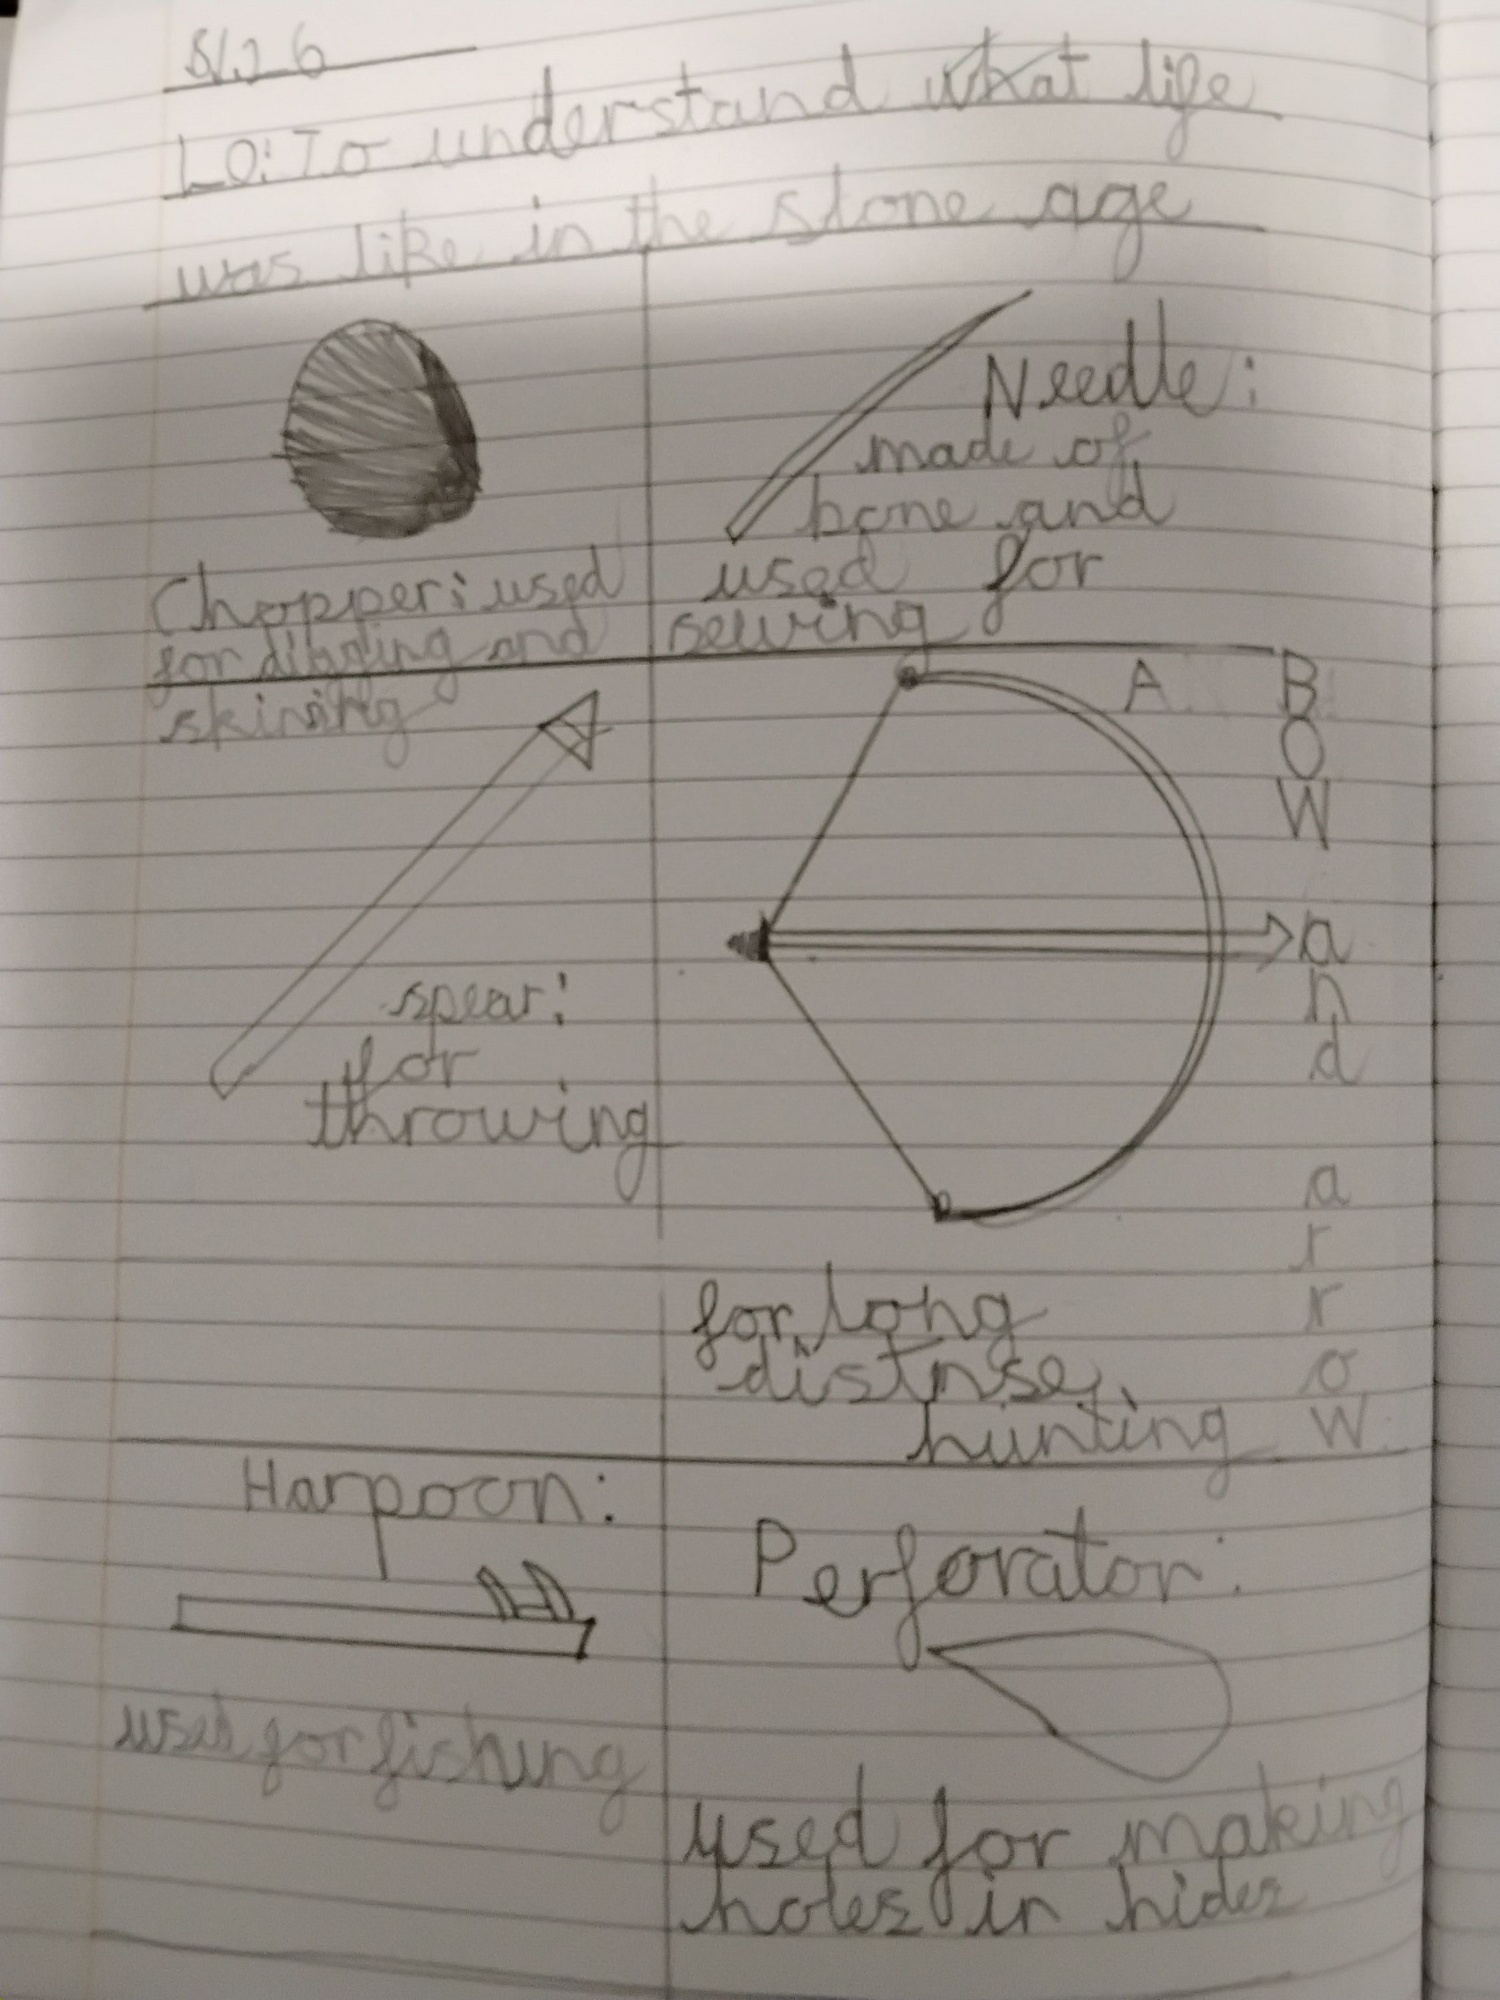 LO: To understand what life
was like in the stone age
Chopper: used
for digging and
skining
Needle:
made of
bone and
used for
sewing
spear:
for
throwing
A BOW and arrow
for long
distnse
hunting
Harpoon:
used for fishing
Perforator:
used for making
holes in hides